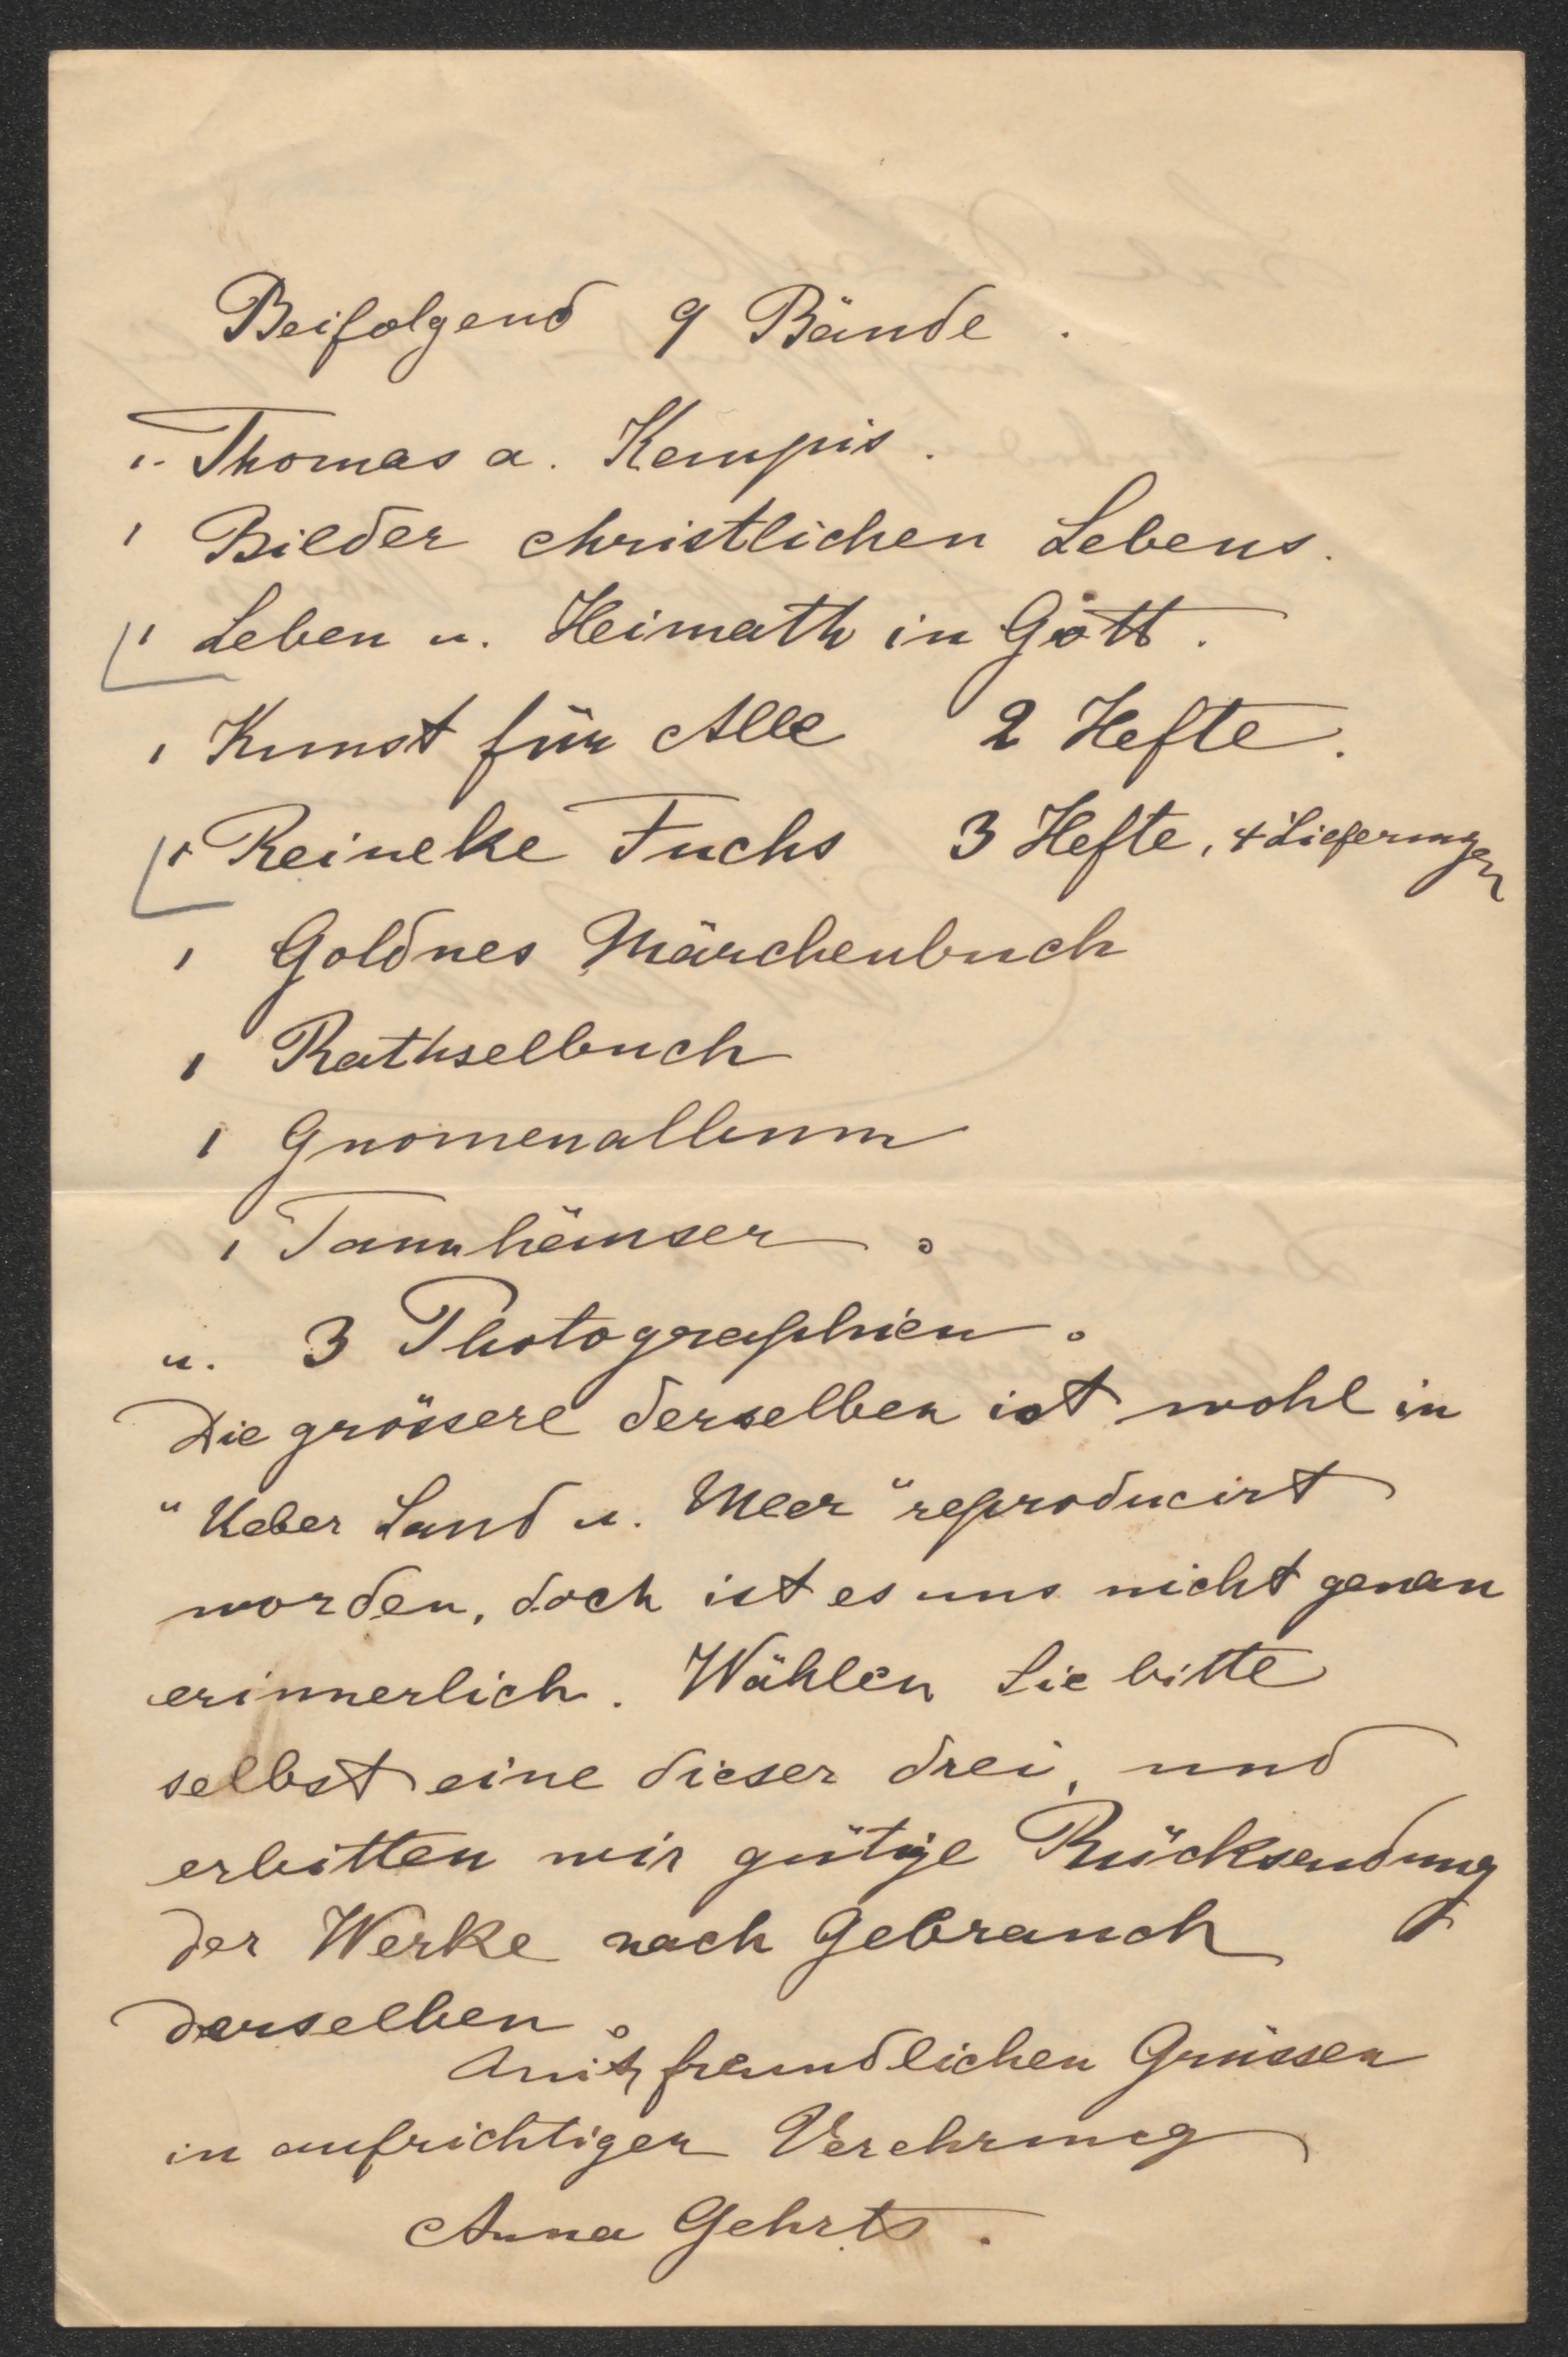 Beifolgend 9 Bände.
1. Thomas a. Kempis.
1 Bilder christlichen Lebens.
1 Leben u. Heimath in Gott.
1 Kunst für Alle 2 Hefte.
1 Reineke Fuchs 3 Hefte, 4 Lieferungen
1 Goldnes Märchenbuch
1 Rathselbuch
1 Gnomenalbum
1 Tannhäuser.
u. 3 Photographien.
Die grössere derselben ist wohl in
"Ueber Land u. Meer" reproducirt
worden, doch ist es uns nicht genau
erinnerlich. Wählen Sie bitte
selbst eine dieser drei, und
erbitten wir gütige Rücksendung
der Werke nach Gebrauch
derselben.
Mit freundlichen Grüssen
in aufrichtiger Verehrung
Anna Gehrts.